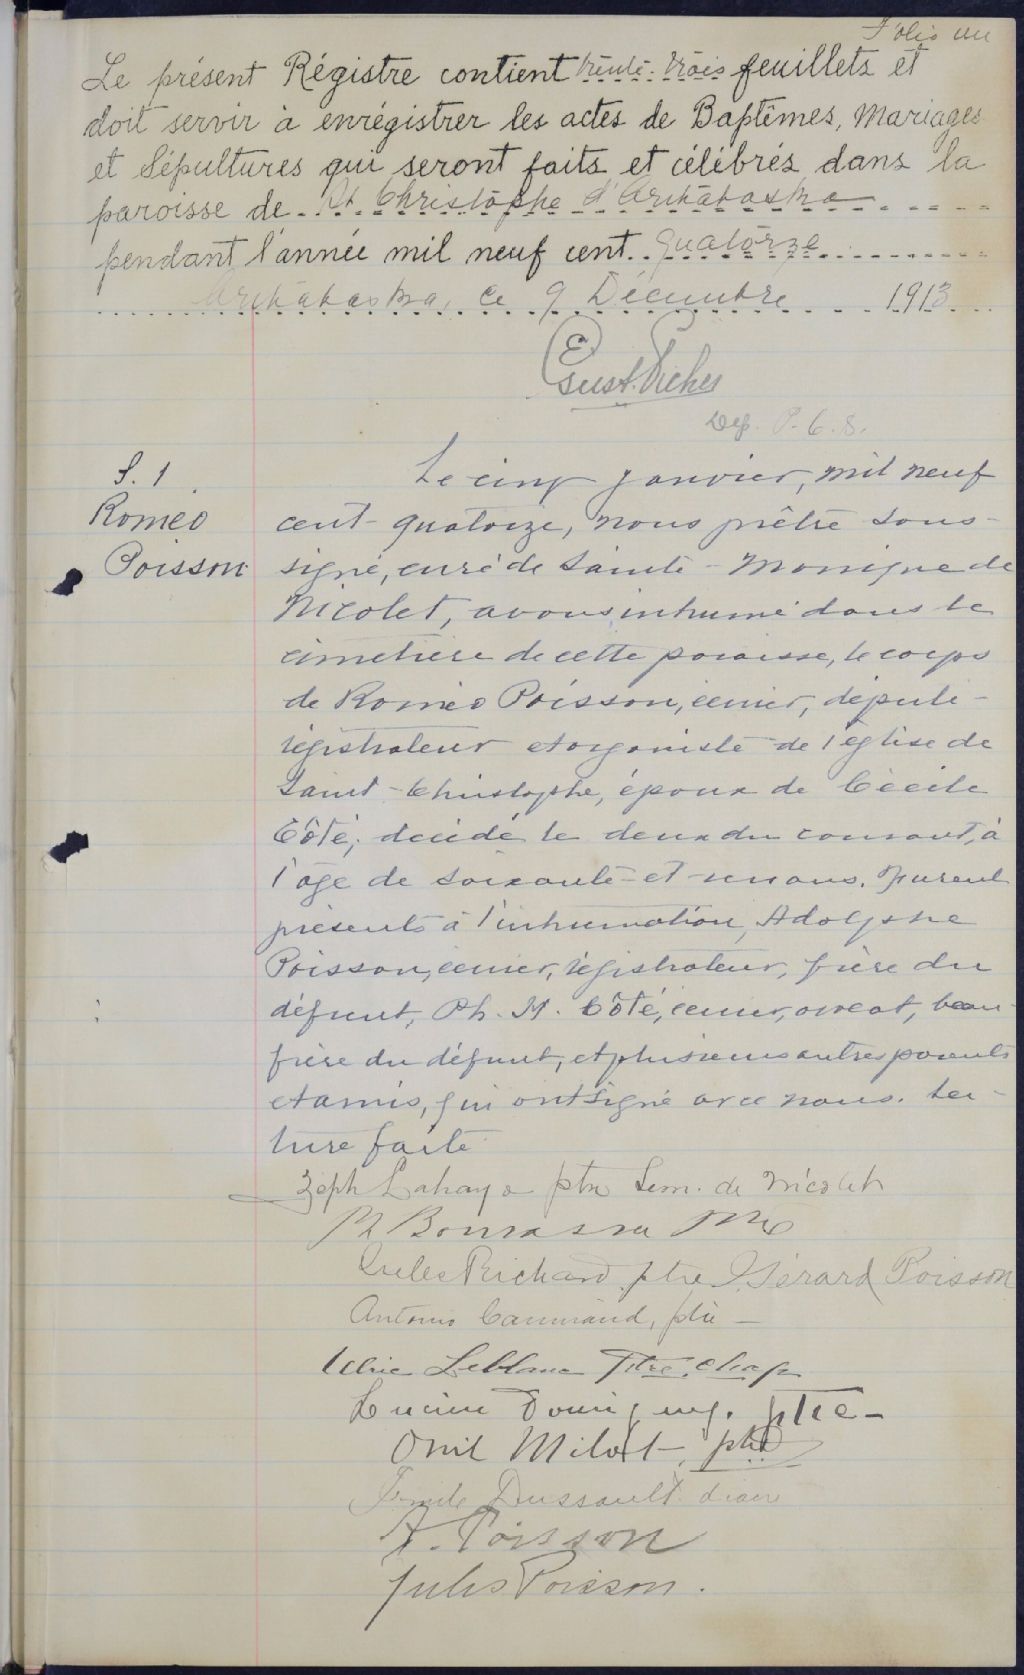 Folio un
Le présent Régistre contient trente-trois feuillets et
doit servir à enrégistrer les actes de Baptêmes, Mariages
et Sépultures qui seront faits et célébrés dans la
paroisse de St Christophe d'Arthabaska
pendant l'année mil neuf cent quatorze
Arthabaska, ce 9 Décembre 1913
Dep. P. C. S.
S. 1
Roméo
Poisson
Le cinq janvier, mil neuf
cent quatorze, nous prêtre sous-
signé, curé de Sainte-Monique de
Nicolet, avons inhumé dans le
cimetière de cette paroisse, le corps
de Roméo Poisson, écuier, député-
régistrateur et organiste de l'église de
Saint-Christophe, époux de Cécile
Côté, décédé le deux du courant, à
l'âge de soixante-et-un ans. Furent
présents à l'inhumation, Adolphe
Poisson, écuier, régistrateur, frère du
défunt, Ph. H. Côté, écuier, avocat, beau-
frère du défunt, et plusieurs autres parents
et amis, qui ont signé avec nous. Lec-
ture faite
Zéph Lahaye ptre Sem. de Nicolet
Bourassa ptre
Jules Richard ptre Gérard Poisson
Antonio Camirand, ptre
Ulric Leblanc Ptre, chap
Lucien ptre
Onil Milot, ptre
Dussault diacre
A. Poisson
Jules Poisson.